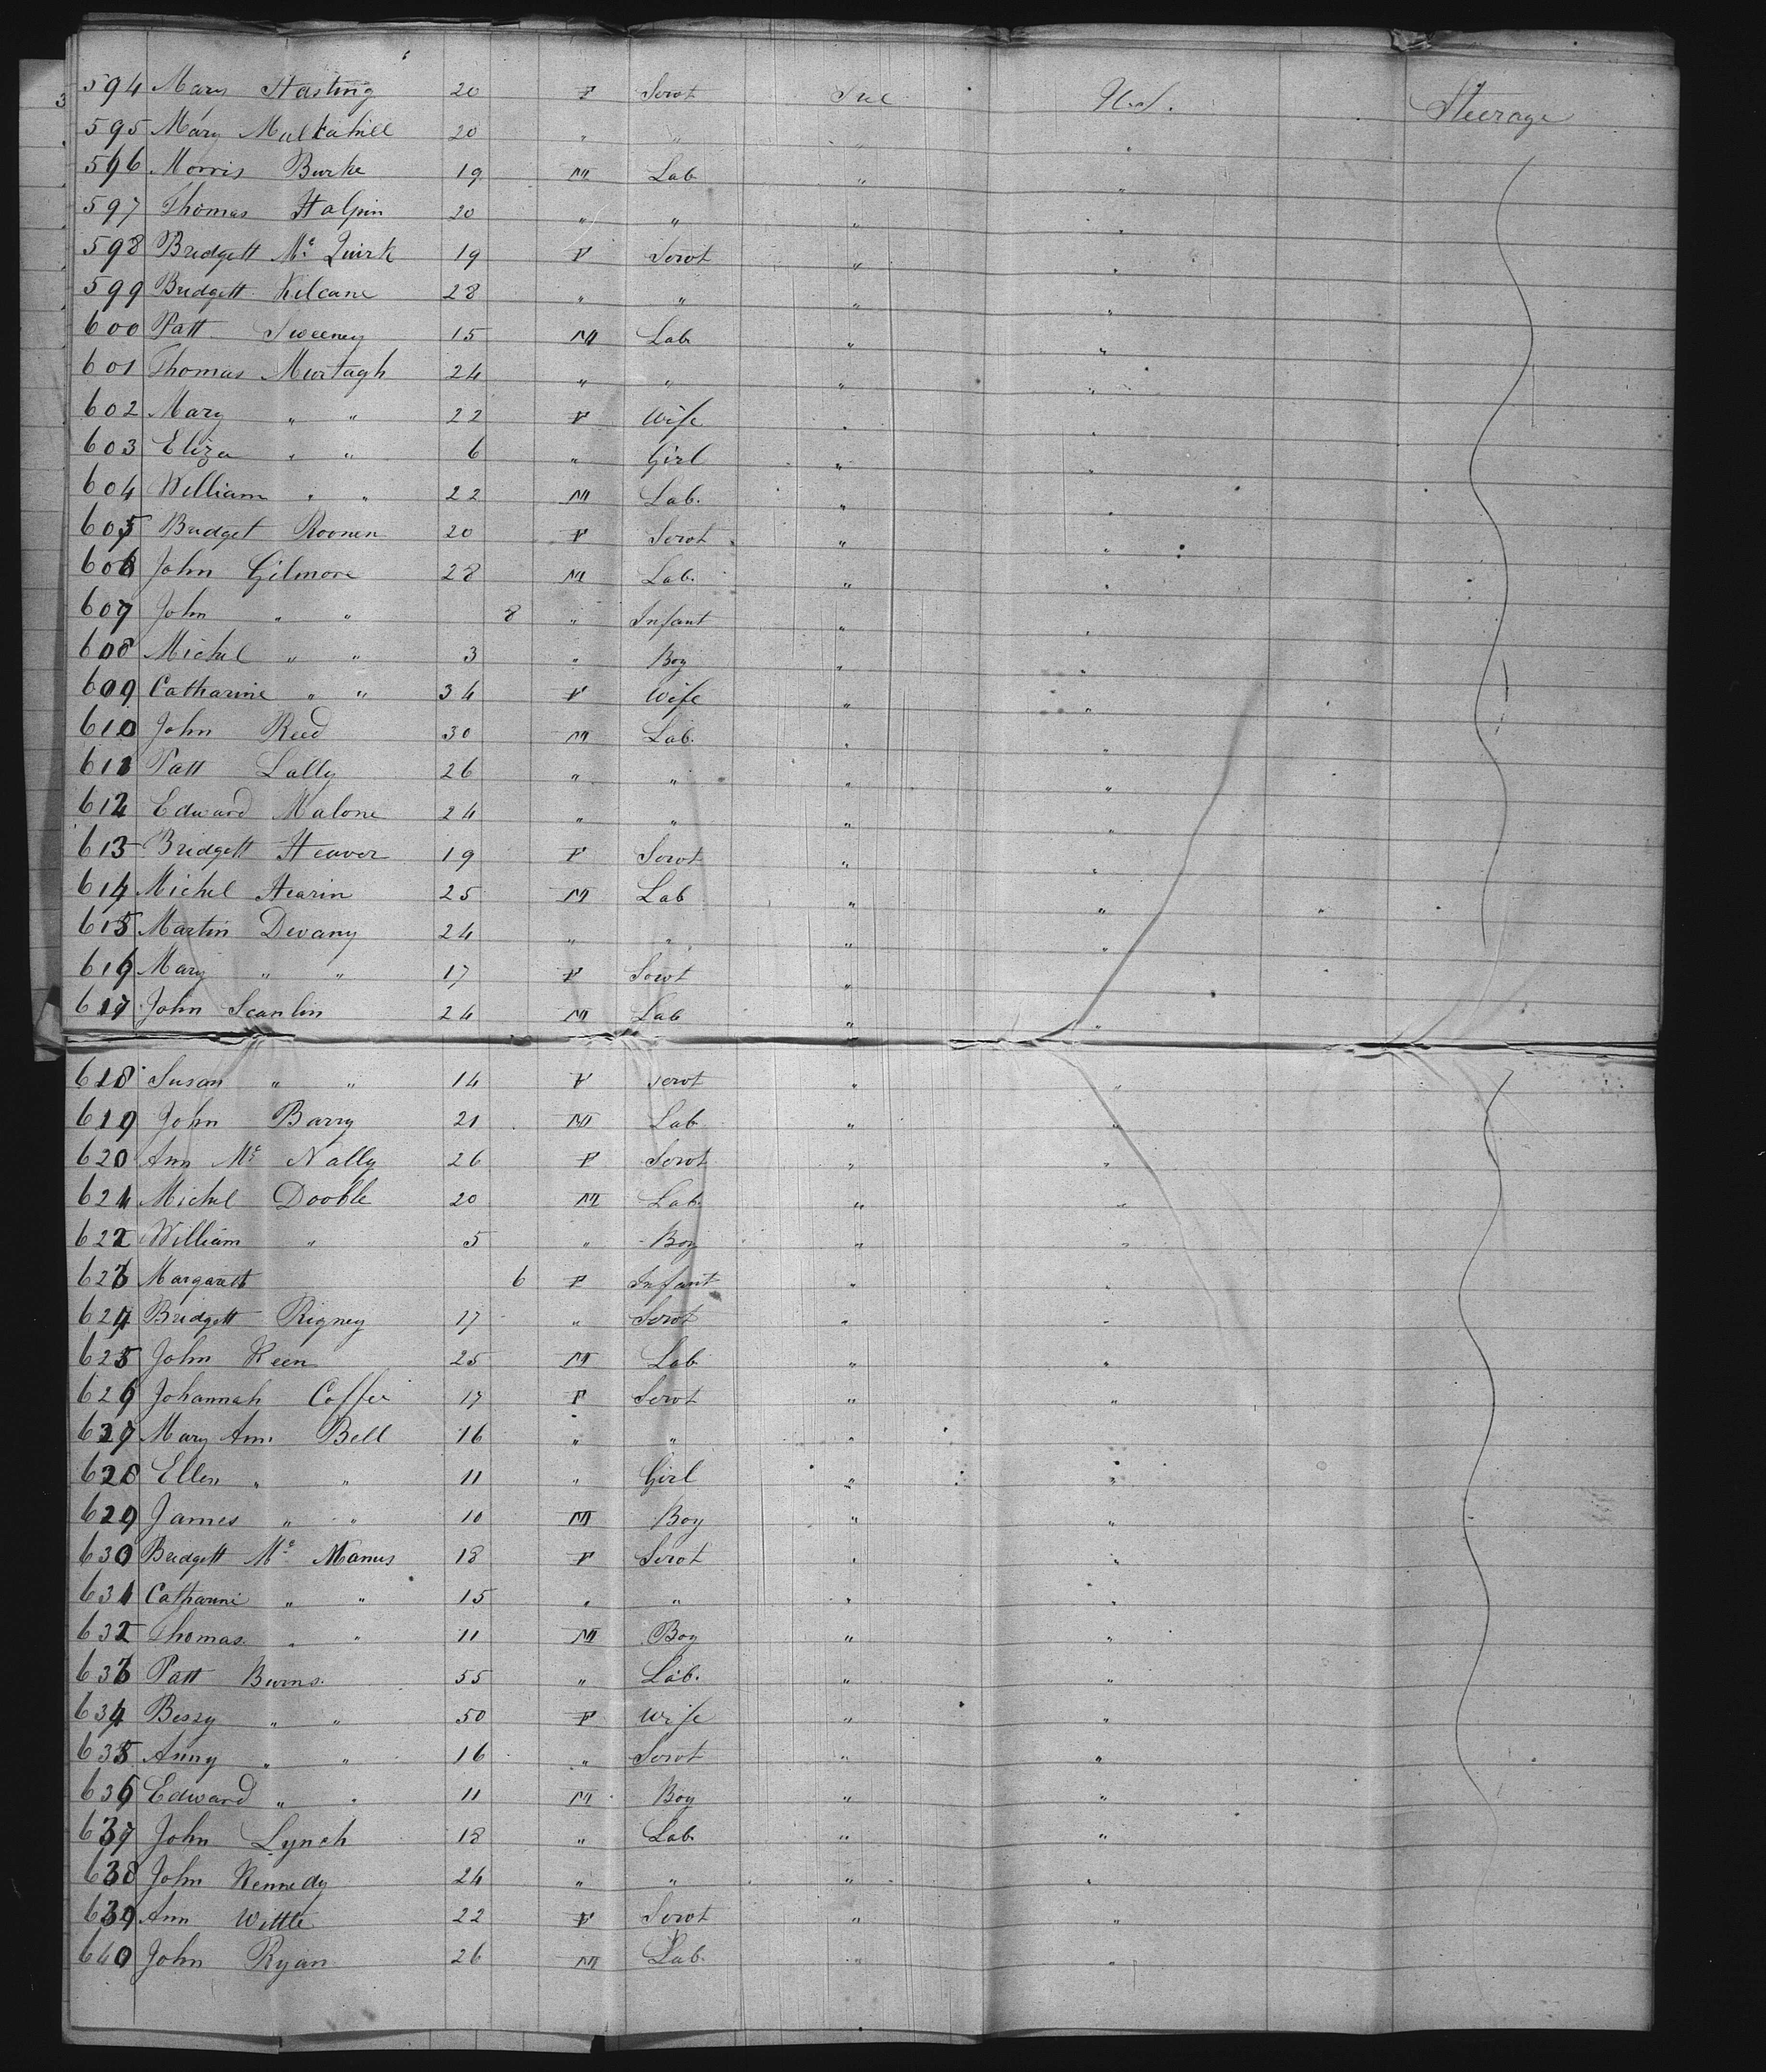 594 Mary Hasting 20 F Servt Ire U.S. Steerage
595 Mary Mulkahill 20 " " " "
596 Morris Burke 19 M Lab " "
597 Thomas Halpin 20 " " " "
598 Bridgett Mc Quirk 19 F Servt " "
599 Bridgett Kilcane 28 " " " "
600 Patt Sweeney 15 M Lab " "
601 Thomas Murtagh 24 " " " "
602 Mary " " 22 F Wife " "
603 Eliza " " 6 " Girl " "
604 William " " 22 M Lab. " "
605 Bridget Roonen 20 F Servt " "
606 John Gilmore 28 M Lab. " "
607 John " " 8 " Infant " "
608 Michel " " 3 " Boy " "
609 Catharine " " 34 F Wife " "
610 John Reed 30 M Lab. " "
611 Patt Lally 26 " " " "
612 Edward Malone 24 " " " "
613 Bridgett Heaver 19 F Servt " "
614 Michel Hearin 25 M Lab " "
615 Martin Devany 24 " " " "
616 Mary " " 17 F Servt "
617 John Scanlin 24 M Lab " "
618 Susan " " 14 F Servt " "
619 John Barry 21 M Lab " "
620 Ann Mc Nally 26 F Servt " "
621 Michel Dooble 20 M Lab. " "
622 William " 5 " Boy " "
623 Margarett 6 F Infant " "
624 Bridgett Rigney 17 " Servt " "
625 John Keen 25 M Lab " "
626 Johannah Coffee 17 F Servt " "
627 Mary Ann Bell 16 " " "
628 Ellen " " 11 " Girl " "
629 James " " 10 M Boy " "
630 Bridgett Mc Manus 18 F Servt " "
631 Catharine " " 15 " " " "
632 Thomas " " 11 M Boy " "
633 Patt Burns. 55 " Lab. " "
634 Bessy " " 50 F Wife " "
635 Anny " " 16 " Servt " "
636 Edward " " 11 M Boy " "
637 John Lynch 18 " Lab " "
638 John Kennedy 24 " " " "
639 Ann Wittle 22 F Servt " "
640 John Ryan 26 M Lab. " "